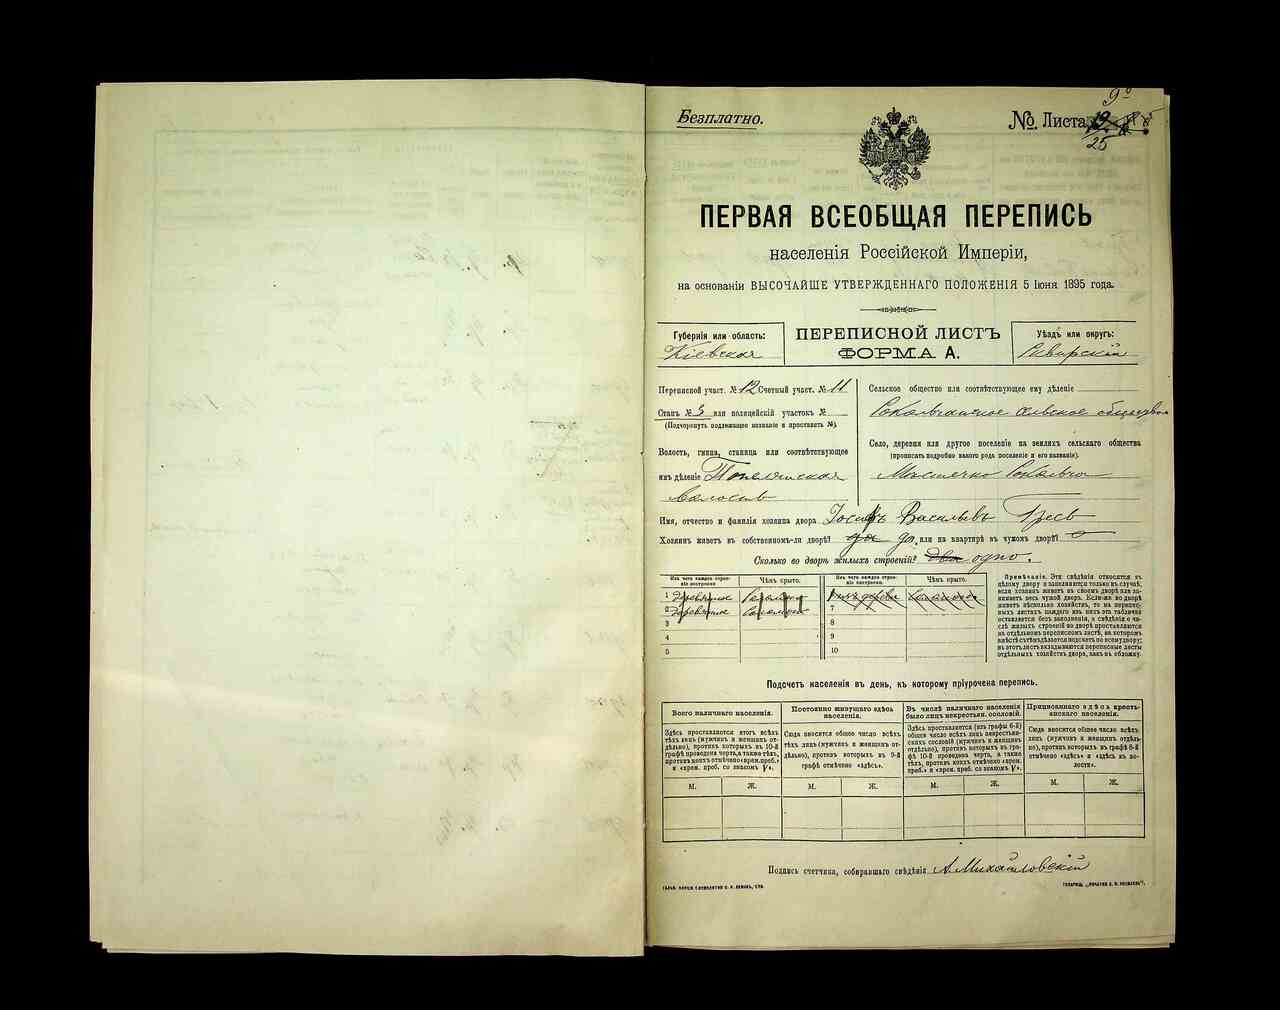 Безплатно.
№ Листа
90
25
ПЕРВАЯ ВСЕОБЩАЯ ПЕРЕПИСЬ
населенія Россійской Имперіи,
на основаніи ВЫСОЧАЙШЕ УТВЕРЖДЕННАГО ПОЛОЖЕНІЯ 5 Іюня 1895 года.
Губернія или область:
Кіевская
ПЕРЕПИСНОЙ ЛИСТЪ
ФОРМА А.
Уѣздъ или округъ:
Сквирскій
Переписной участ. № 12 Счетный участ. № 11
Станъ № 3 или полицейскій участокъ №
(Подчеркнуть подлежащее названіе и проставить №).
Волость, гмина, станица или соотвѣтствующее
имъ дѣленіе
волость
Сельское общество или соотвѣтствующее ему дѣленіе
сельское общество
Село, деревня или другое поселеніе на земляхъ сельскаго общества
(прописать подробно какого рода поселеніе и его названіе).
Мѣстечко
Имя, отчество и фамилія хозяина двора Іосифъ Васильевъ
Хозяинъ живетъ въ собственномъ-ли дворѣ? да, или на квартирѣ въ чужомъ дворѣ?
Сколько во дворѣ жилыхъ строеній? два одно.
Изъ чего каждое строеніе построено
Чѣмъ крыто.
Изъ чего каждое строеніе построено
Чѣмъ крыто.
1 Деревянное Соломою
2 Деревянное Соломою
3
4
5
7
8
9
10
Примѣчаніе. Эти свѣдѣнія относятся къ
цѣлому двору и заполняются только въ случаѣ,
если хозяинъ живетъ въ своемъ дворѣ или занимаетъ
весь чужой дворъ. Если-же во дворѣ
живетъ нѣсколько хозяйствъ, то на переписныхъ
листахъ каждаго изъ нихъ эта табличка
оставляется безъ заполненія, а свѣдѣнія о числѣ
жилыхъ строеній во дворѣ проставляются
на отдѣльномъ переписномъ листѣ, на которомъ
вмѣстѣ съ тѣмъ дѣлается подсчетъ по всему двору;
въ этотъ листъ вкладываются переписные листы
отдѣльныхъ хозяйствъ двора, какъ въ обложку.
Подсчетъ населенія въ день, къ которому пріурочена перепись.
Всего наличнаго населенія.
Постоянно живущаго здѣсь
населенія.
Въ числѣ наличнаго населенія
было лицъ некрестьян. сословій.
Приписаннаго здѣсь крестьянскаго
населенія.
Здѣсь проставляется итогъ всѣхъ
тѣхъ лицъ (мужчинъ и женщинъ отдѣльно),
противъ которыхъ въ 10-й
графѣ проведена черта, а также тѣхъ,
противъ коихъ отмѣчено «врем. преб.»
и «врем. преб. со знакомъ V».
Сюда вносится общее число всѣхъ
тѣхъ лицъ (мужчинъ и женщинъ отдѣльно),
противъ которыхъ въ 9-й
графѣ отмѣчено «здѣсь».
Здѣсь проставляется (изъ графы 6-й)
общее число всѣхъ лицъ некрестьянскихъ
сословій (мужчинъ и женщинъ
отдѣльно), противъ которыхъ въ графѣ
10-й проведена черта, а также
«врем. преб.» и «врем. преб. со знакомъ V».
Сюда вносится общее число всѣхъ
лицъ (мужчинъ и женщинъ отдѣльно),
противъ которыхъ въ графѣ 8-й
отмѣчено «здѣсь» и «здѣсь въ волости».
М. Ж. М. Ж. М. Ж. М. Ж.
Подпись счетчика, собиравшаго свѣдѣнія А. Михайловскій